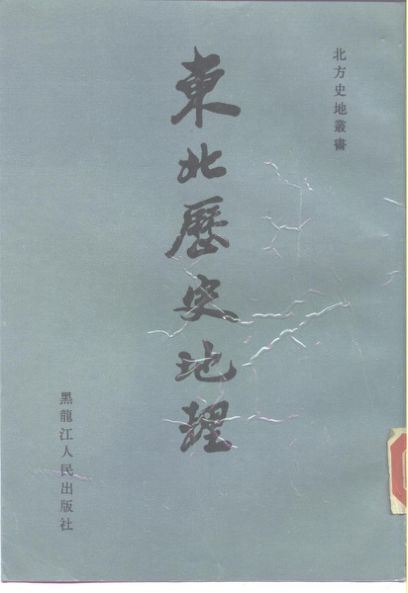 北方史地叢書
東北歷史地理
黑龍江人民出版社